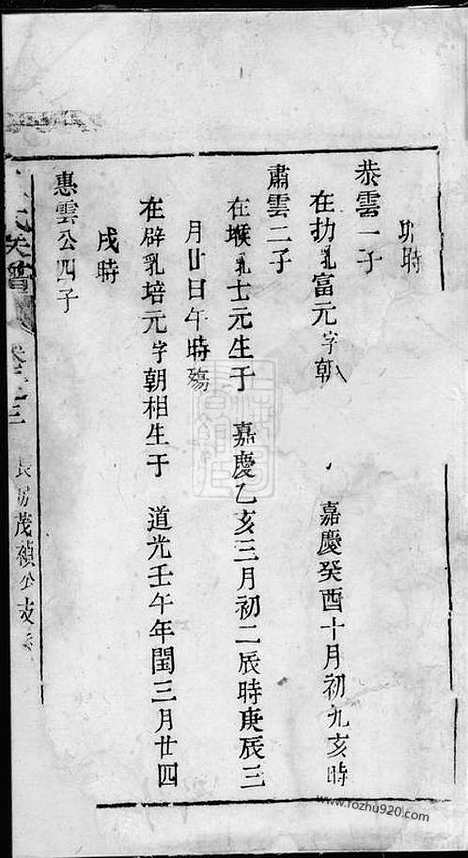 卯時
恭雲一子
在扐乳富元字朝 嘉慶癸酉十月初九亥時
肅雲二子
在堠乳士元生于 嘉慶乙亥三月初二辰時庚辰三
月廿日午時殤
在辟乳培元字朝相生于 道光壬午年閏三月廿四
戌時
惠雲公四子
氏族譜
長房茂禎公支
www.fozhu920.com